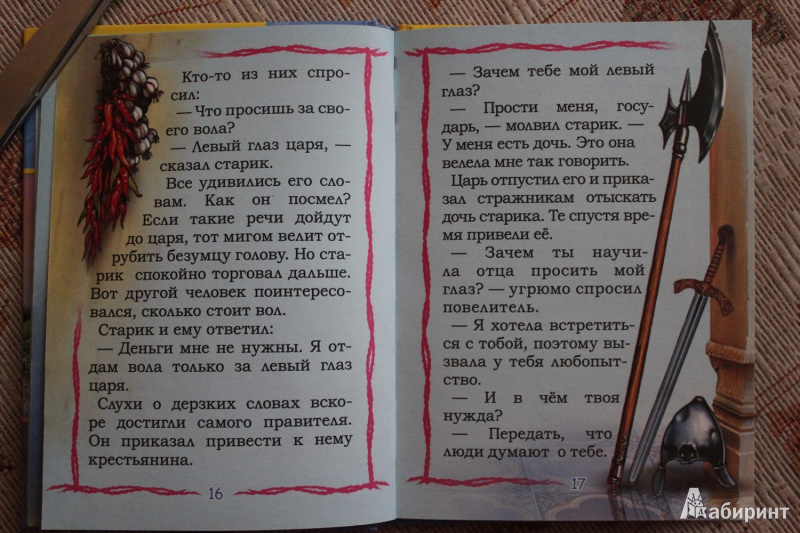 Кто-то из них спро-
сил:
— Что просишь за сво-
его вола?
— Левый глаз царя, —
сказал старик.
Все удивились его сло-
вам. Как он посмел?
Если такие речи дойдут
до царя, тот мигом велит от-
рубить безумцу голову. Но ста-
рик спокойно торговал дальше.
Вот другой человек поинтересо-
вался, сколько стоит вол.
Старик и ему ответил:
— Деньги мне не нужны. Я от-
дам вола только за левый глаз
царя.
Слухи о дерзких словах вско-
ре достигли самого правителя.
Он приказал привести к нему
крестьянина.
16
— Зачем тебе мой левый
глаз?
— Прости меня, госу-
дарь, — молвил старик. —
У меня есть дочь. Это она
велела мне так говорить.
Царь отпустил его и прика-
зал стражникам отыскать
дочь старика. Те спустя вре-
мя привели её.
— Зачем ты научи-
ла отца просить мой
глаз? — угрюмо спросил
повелитель.
— Я хотела встретить-
ся с тобой, поэтому вы-
звала у тебя любопыт-
ство.
— И в чём твоя
нужда?
— Передать, что
люди думают о тебе.
17
Лабиринт